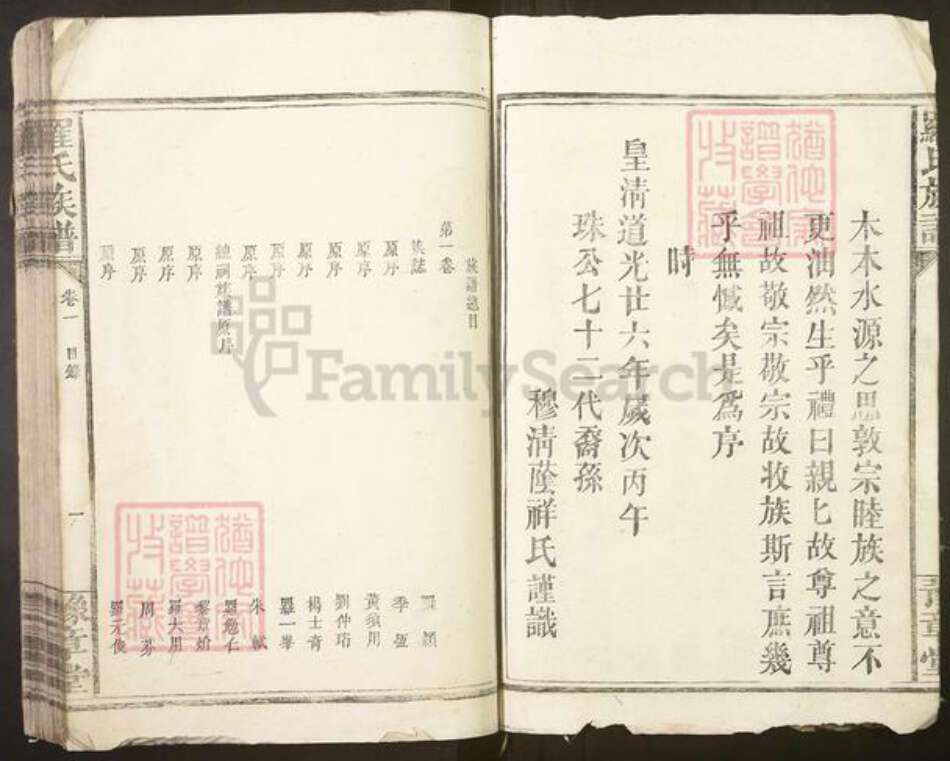 木木水源之思敦宗睦族之意不
更油然生乎禮曰親匕故尊祖尊
祖故敬宗敬宗故收族斯言庶幾
乎無憾矣是為序
時
皇清道光廿六年歲次丙午
珠公七十二代裔孫
穆清蔭祥氏謹識
羅氏族譜
豫章堂
族譜總目
第一卷
族誌
原序 羅穎
原序 季恆
原序
原序 劉仲珩
原序 楊士奇
原序 羅一峯
原序 朱軾
總祠族譜原序
原序
原序 羅大用
原序 周芬
原序 羅元俊
羅氏族譜
卷一 目錄
一
豫章堂
FamilySearch